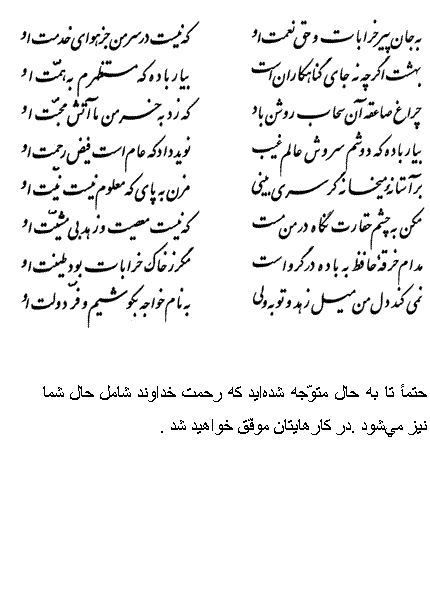 به جان پیر خرابات و حق نعمت او که نیست در سر من جز هوای خدمت او
بهشت اگرچه نه جای گناهکاران است بیار باده که مستظهرم به همّت او
چراغ صاعقهٔ آن سحاب روشن باد که زد به خرمن ما آتش محبّت او
بیار باده که دوشم سروش عالم غیب نوید داد که عام است فیض رحمت او
بر آستانهٔ میخانه گر سری بینی مزن به پای که معلوم نیست نیّت او
مکن به چشم حقارت نگاه در من مست که نیست معصیت و زهد بی مشیّت او
مدام خرقهٔ حافظ به باده در گرو است مگر ز خاک خرابات بود طینت او
نمی کند دل من میل زهد و توبه ولی به نام خواجه بکوشیم و فرّ دولت او
حتماً تا به حال متوّجه شده‌اید که رحمت خداوند شامل حال شما
نیز می‌شود .در کارهایتان موفّق خواهید شد .